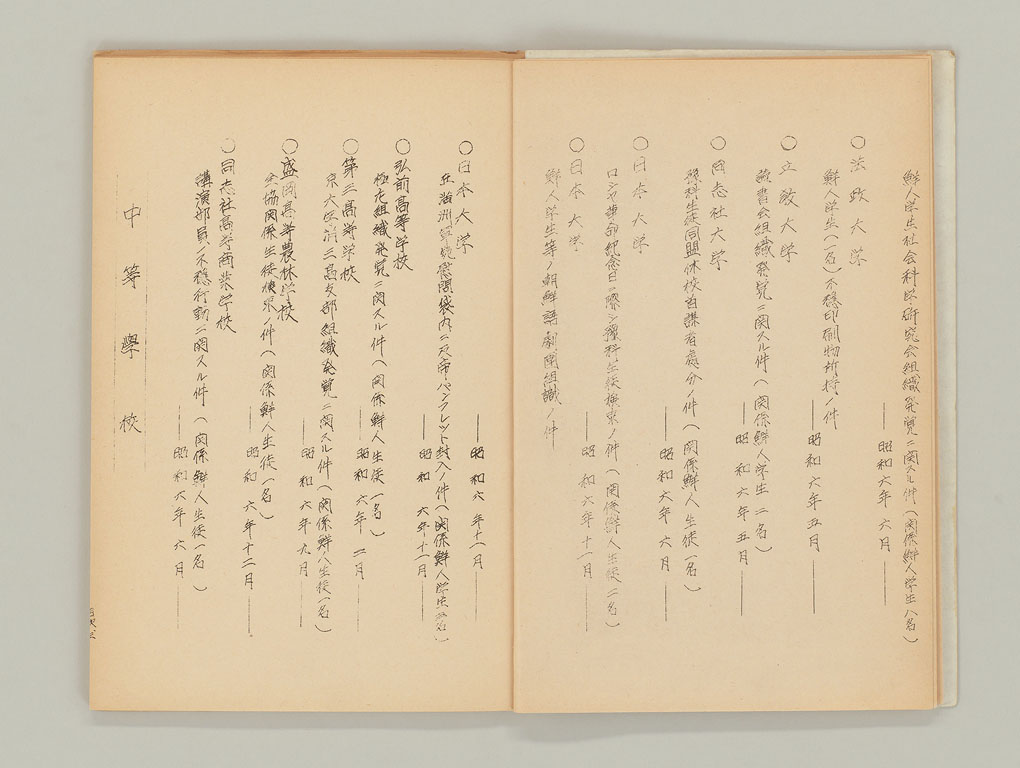 鮮人学生社会科学研究会組織発覚ニ関スル件(関係鮮人学生八名)
——昭和六年六月——
○法政大学
鮮人学生(一名)不穏印刷物所持ノ件
——昭和六年五月——
○立教大学
読書会組織発覚ニ関スル件(関係鮮人学生二名)
——昭和六年五月——
○同志社大学
予科生徒同盟休校首謀者處分ノ件(関係鮮人生徒一名)
——昭和六年六月——
○日本大学
ロシヤ革命紀念日ニ際シ豫科生徒検束ノ件(関係鮮人生徒二名)
——昭和六年十一月——
○日本大学
鮮人学生等ノ朝鮮語劇団組織ノ件
——昭和六年十一月——
○日本大学
在満洲軍兵慰問袋内ニ反帝パンフレット封入ノ件(関係鮮人学生 名)
——昭和六年十一月——
○弘前高等学校
極左組織発覚ニ関スル件(関係鮮人生徒一名)
——昭和六年二月——
○第三高等学校
京大 三高支部組織発覚ニ関スル件(関係鮮人生徒一名)
——昭和六年九月——
○盛岡高等農林学校
全協関係生徒検束ノ件(関係鮮人生徒一名)
——昭和六年十二月——
○同志社高等商業学校
講演部員ノ不穏行動ニ関スル件(関係鮮人生徒一名)
——昭和六年六月——
中等學校